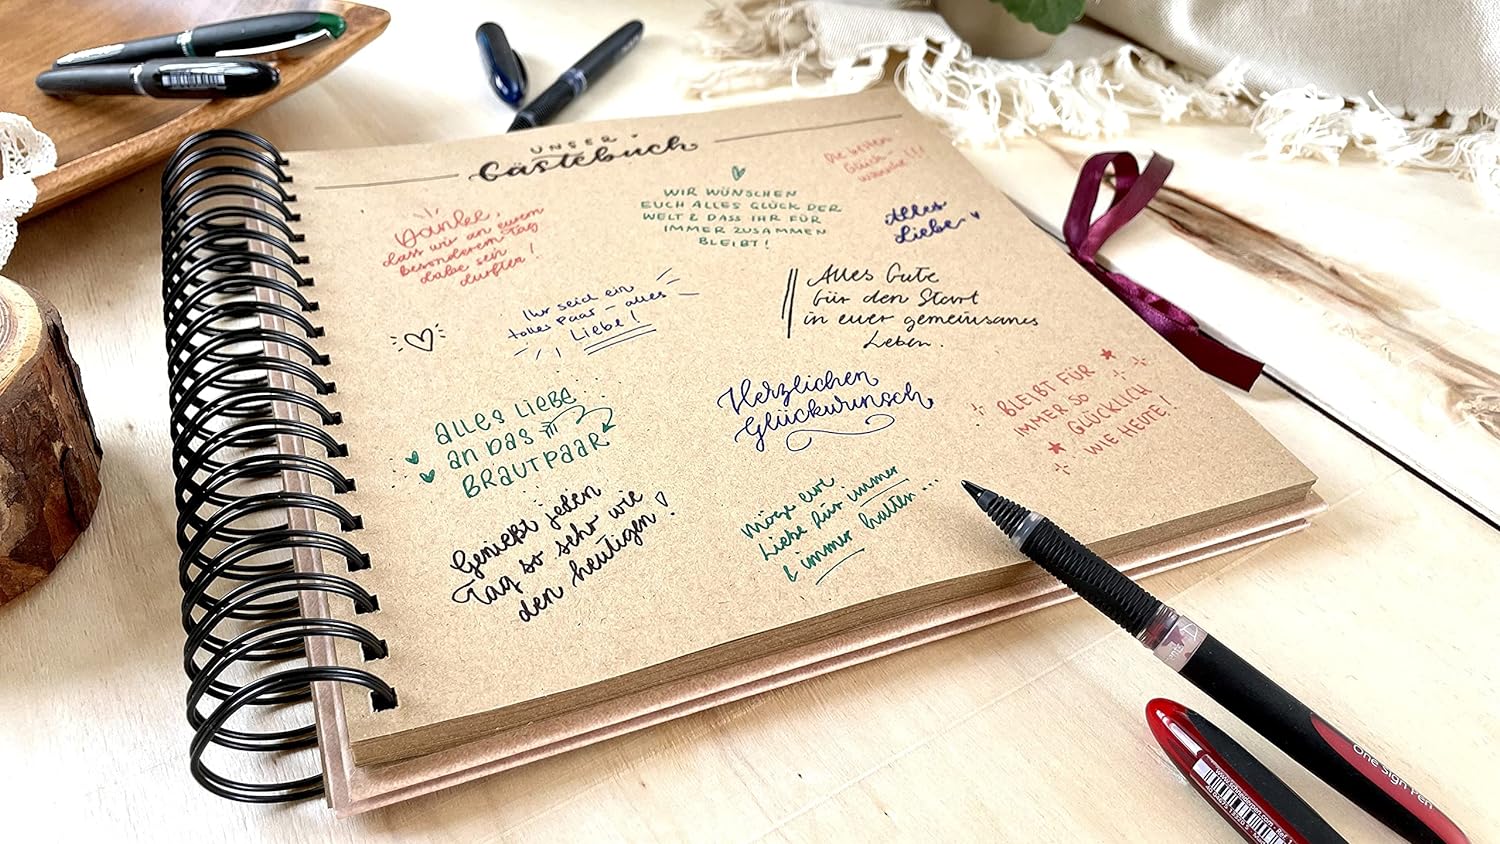 UNSER
Gästebuch
Danke,
dass wir an eurem
besonderem Tag
dabe sein
durften!
WIR WÜNSCHEN
EUCH ALLES GLÜCK DER
WELT & DASS IHR FÜR
IMMER ZUSAMMEN
BLEIBT!
Die besten
Glück
wünsche!!!
Alles
Liebe
Ihr seid ein
tolles Paar - alles
Liebe!
Alles Gute
für den Start
in euer gemeinsames
Leben.
ALLES LIEBE
AN DAS
BRAUTPAAR
Herzlichen
Glückwunsch
BLEIBT FÜR
IMMER SO
GLÜCKLICH
WIE HEUTE!
Genießt jeden
Tag so sehr wie
den heutigen!
Möge eure
Liebe für immer
& immer halten...
One Sign Pen